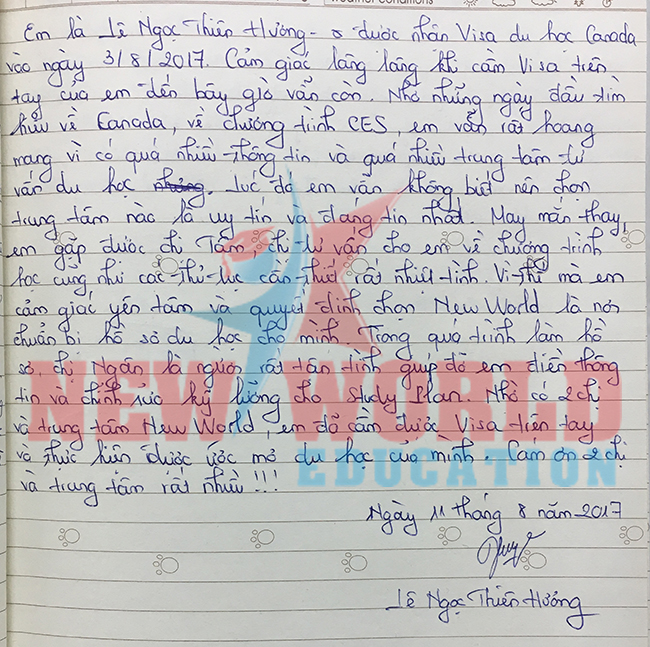 Weather Conditions
Em là Lê Ngọc Thiên Hương - đã được nhận Visa du học Canada
vào ngày 3/8/2017. Cảm giác lâng lâng khi cầm Visa trên
tay của em đến bây giờ vẫn còn. Nhớ những ngày đầu tìm
hiểu về Canada, về chương trình CES, em vẫn rất hoang
mang vì có quá nhiều thông tin và quá nhiều trung tâm tư
vấn du học. Lúc đó em vẫn không biết nên chọn
trung tâm nào là uy tín và đáng tin nhất. May mắn thay,
em gặp được chị Tâm, chị tư vấn cho em về chương trình
học cũng như các thủ tục cần thiết rất nhiệt tình. Vì thế mà em
cảm giác yên tâm và quyết định chọn New World là nơi
chuẩn bị hồ sơ du học cho mình. Trong quá trình làm hồ
sơ, chị Ngân là người rất tận tình giúp đỡ em điền thông
tin và chỉnh sửa kỹ lưỡng cho Study Plan. Nhờ có 2 chị
và trung tâm New World, em đã cầm được Visa trên tay
và thực hiện được ước mơ du học của mình. Cám ơn 2 chị
và trung tâm rất nhiều!!!
NEW WORLD
EDUCATION
Ngày 11 tháng 8 năm 2017
Lê Ngọc Thiên Hương